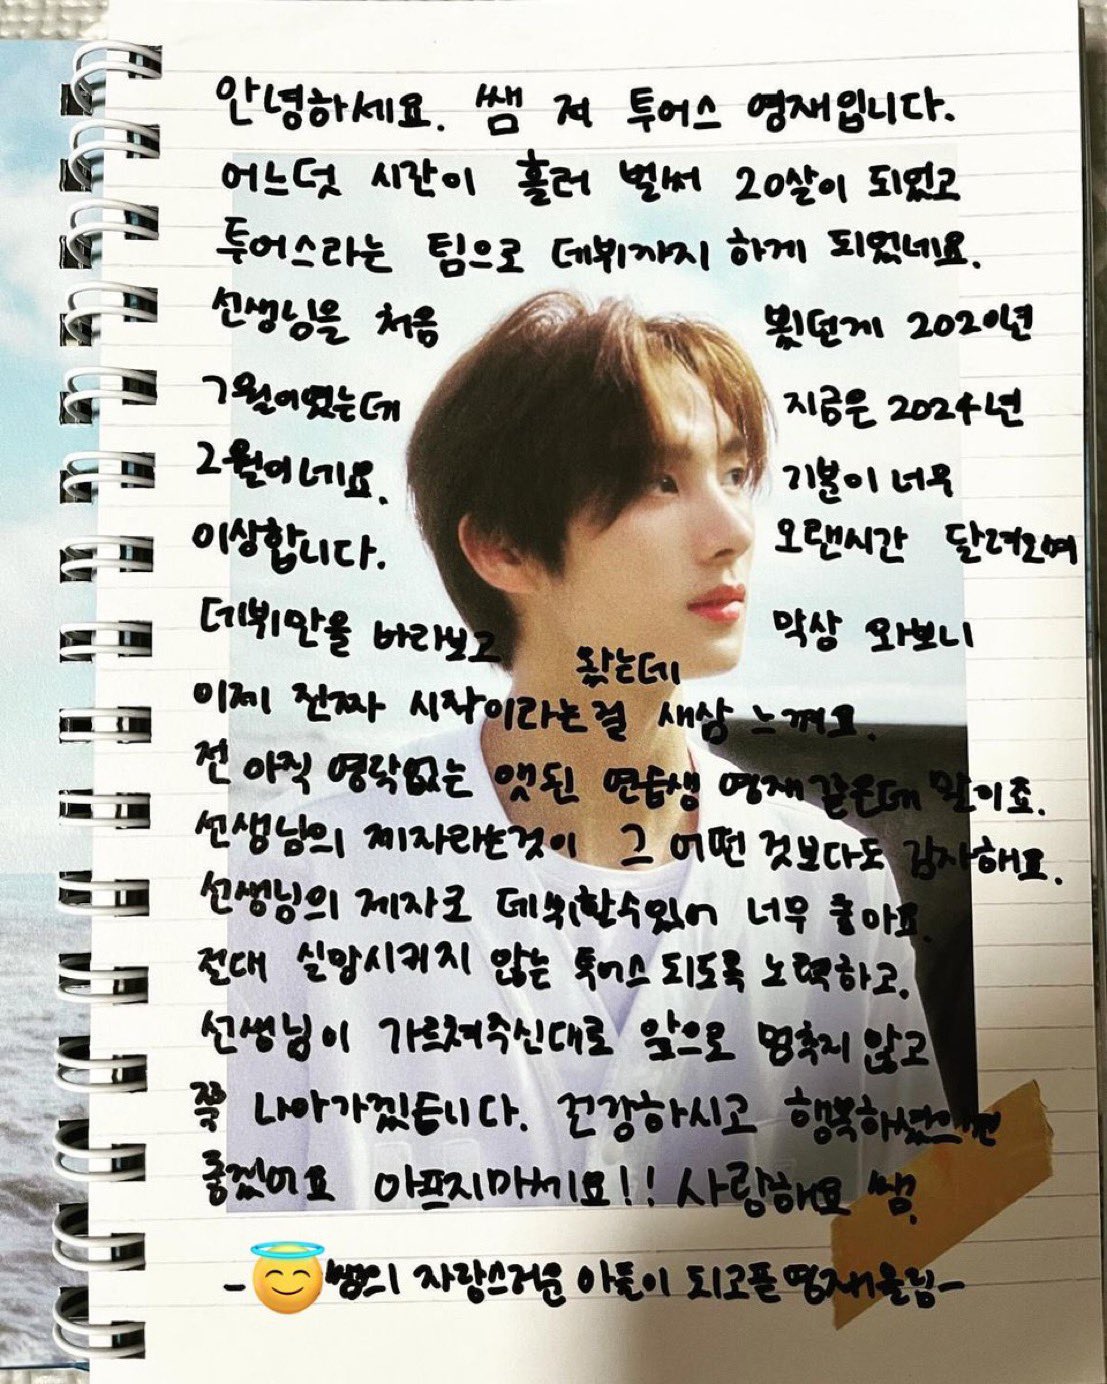 안녕하세요. 쌤 저 투어스 영재입니다.
어느덧 시간이 흘러 벌써 20살이 되었고
투어스라는 팀으로 데뷔까지 하게 되었네요.
선생님을 처음 뵜던게 2020년
7월이였는데 지금은 2024년
2월이네요. 기분이 너무
이상합니다. 오랜시간 달려오며
데뷔만을 바라보고 왔는데 막상 와보니
이제 진짜 시작이라는걸 새삼 느껴요.
전 아직 영락없는 앳된 연습생 영재같은데 말이죠.
선생님의 제자라는것이 그 어떤 것보다도 감사해요.
선생님의 제자로 데뷔할수있어 너무 좋아요.
절대 실망시키지 않는 투어스 되도록 노력하고.
선생님이 가르쳐주신대로 앞으로 멈추지 않고
쭉 나아가겠습니다. 건강하시고 행복하셨으면
좋겠어요 아프지마세요!! 사랑해요 쌤.
- 😇쌤의 자랑스러운 아들이 되고픈 영재올림-